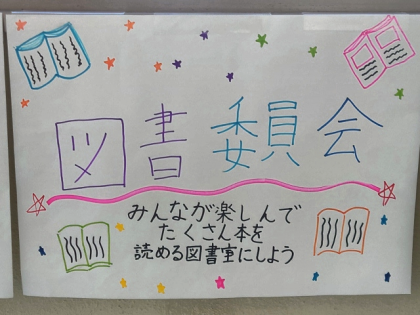 図書委員会
みんなが楽しんで
たくさん本を
読める図書室にしよう